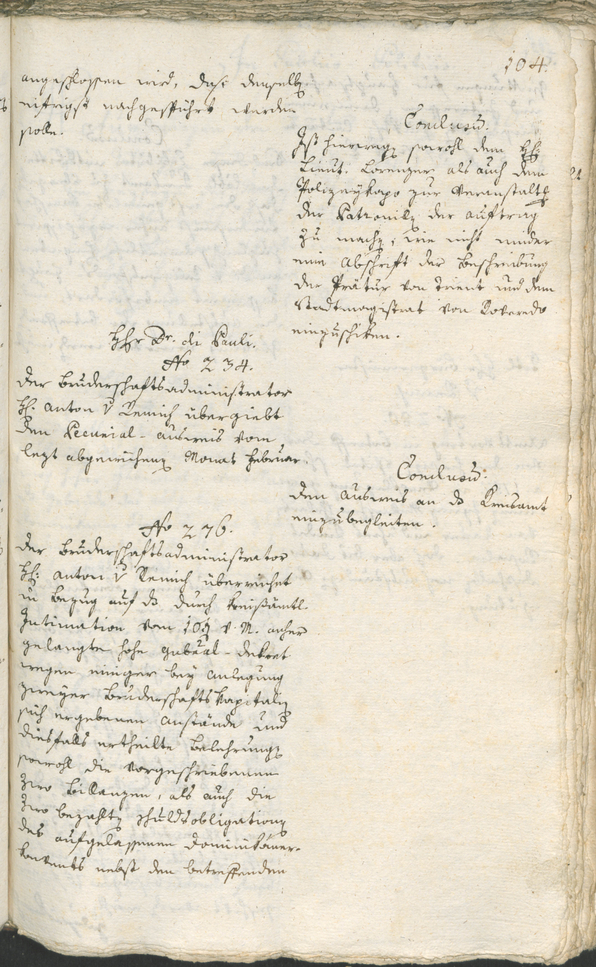 104.
angeschlossen wird, dass denselb
eifrigst nachgespührt werden
solle.
Conclusum.
Ist hierwegen sowohl dem H:
Lieut. Lorenzer als auch dem
Polizeykapo zur Veranstaltg
der Patrouillen der Auftrag
zu machen, wie nicht minder
eine Abschrift der Beschreibung
der Prätur von Trient und dem
Stadtmagistrat von Roveredo
einzuschiken.
Hr Dr. di Pauli.
No 234.
Der Bruderschaftsadministrator
H: Anton v Remich übergiebt
den Pecunial-Ausweis vom
lezt abgewichenen Monat Februar.
Conclusum:
Den Ausweis an das Kreisamt
einzubegleiten.
No 276.
Der Bruderschaftsadministrator
H: Anton v Remich überreichet
in Bezug auf das durch kreisämtl.
Intimation vom v. M. anher
gelangte hohe Gubernial-Dekret
wegen einiger bey Anlegung
zweyer Bruderschaftskapitalien
sich ergebenen Anstände und
diesfalls ertheilte Belehrung
sowohl die vorgeschriebenen
zwo Billanzen, als auch die
zwo bezahlte Schuldobligationen
des aufgelassenen Dominikaner-
konvents nebst den betreffenden